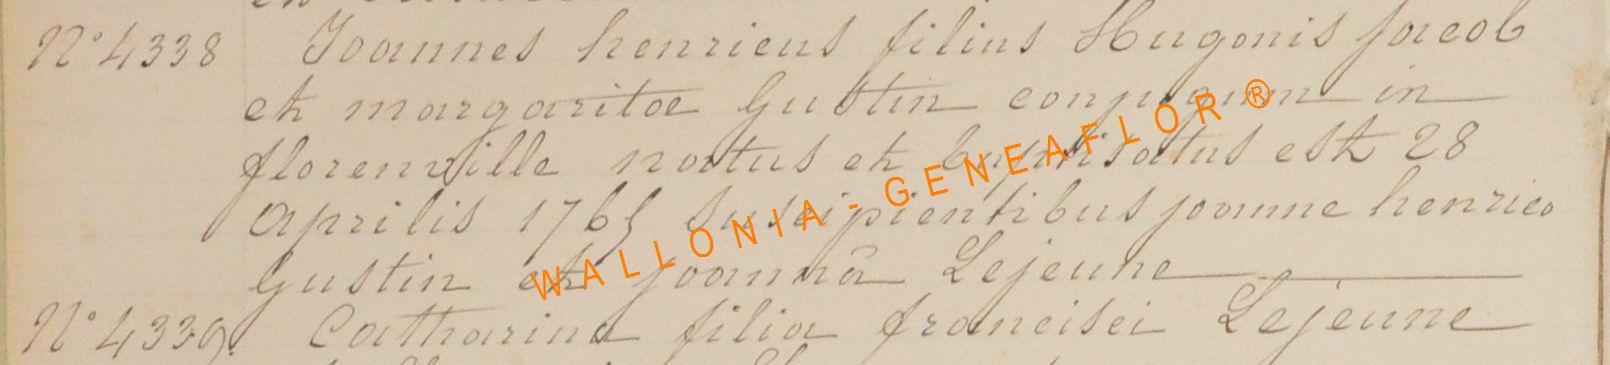 N° 4338 Joannes henricus filius Hugonis jacob
et margaritae Gustin conjugum in
florenville natus et baptisatus est 28
aprilis 1765 suscipientibus joanne henrico
gustin et joannâ Lejeune
N° 4339. Catharina filia francisci Lejeune
WALLONIA - GENEAFLOR ®